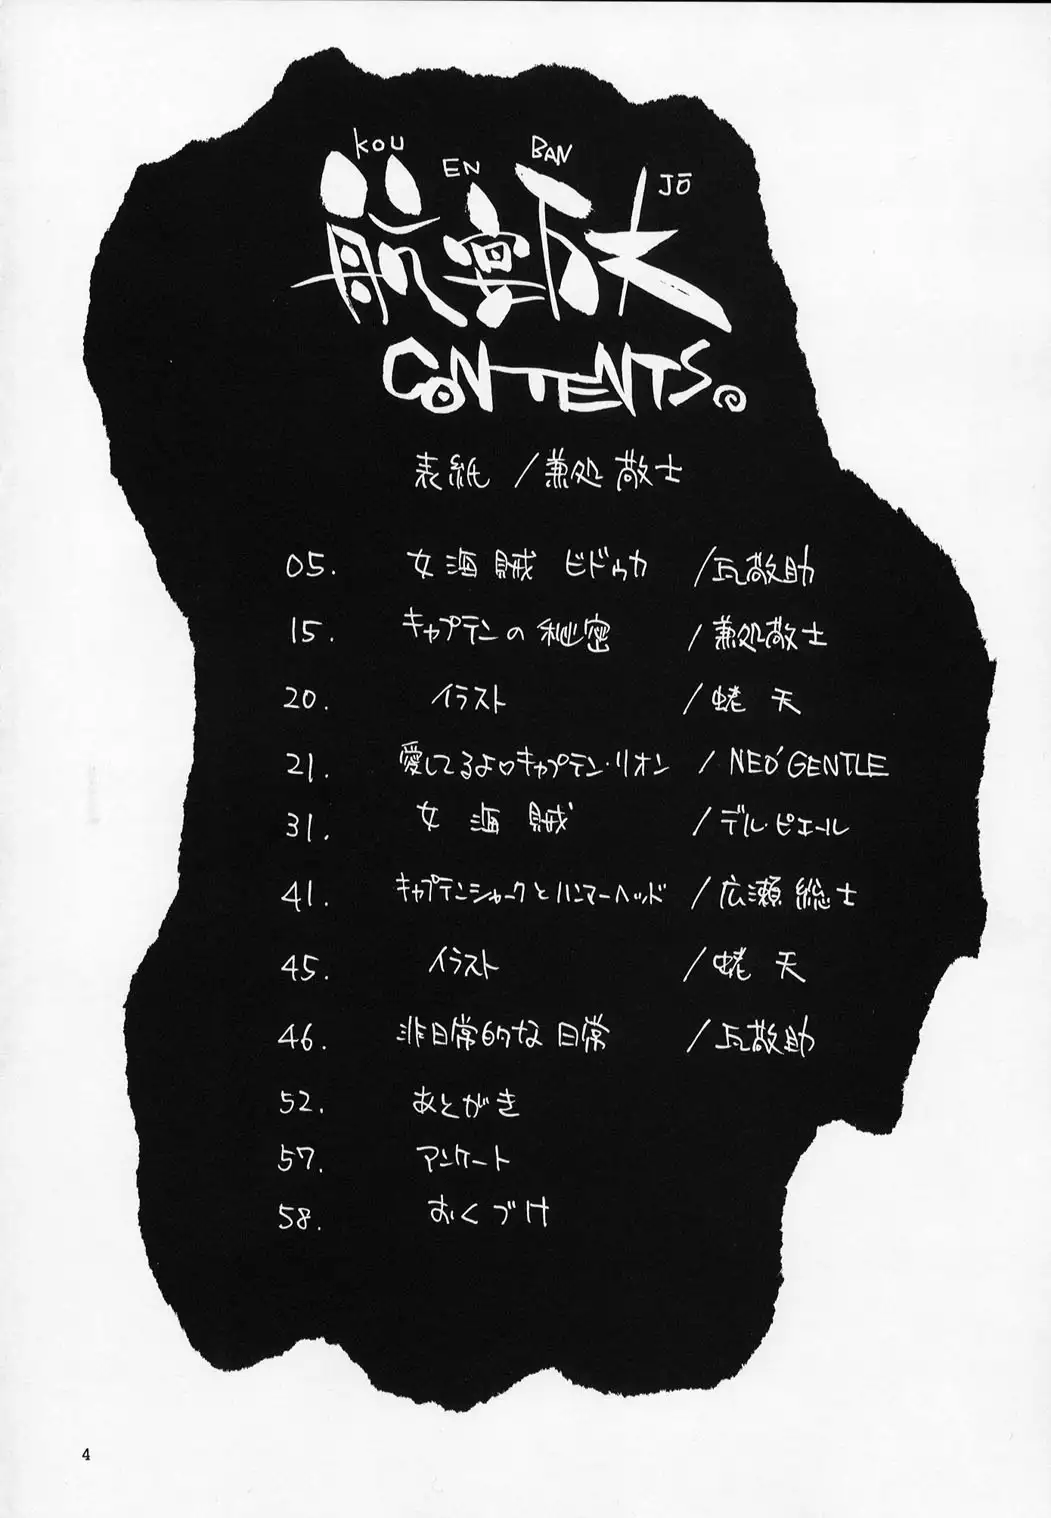 KOU EN BAN JŌ
CONTENTS。
表紙 /兼処敬士
05. 女海賊 ビドゥカ /瓦敬助
15. キャプテンの秘密 /兼処敬士
20. イラスト /蛯天
21. 愛してるよ♡キャプテン・リオン / NEO'GENTLE
31. 女海賊 /デル・ピエール
41. キャプテンシャークとハンマーヘッド /広瀬総士
45. イラスト /蛯天
46. 非日常的な日常 /瓦敬助
52. あとがき
57. アンケート
58. おくづけ
4